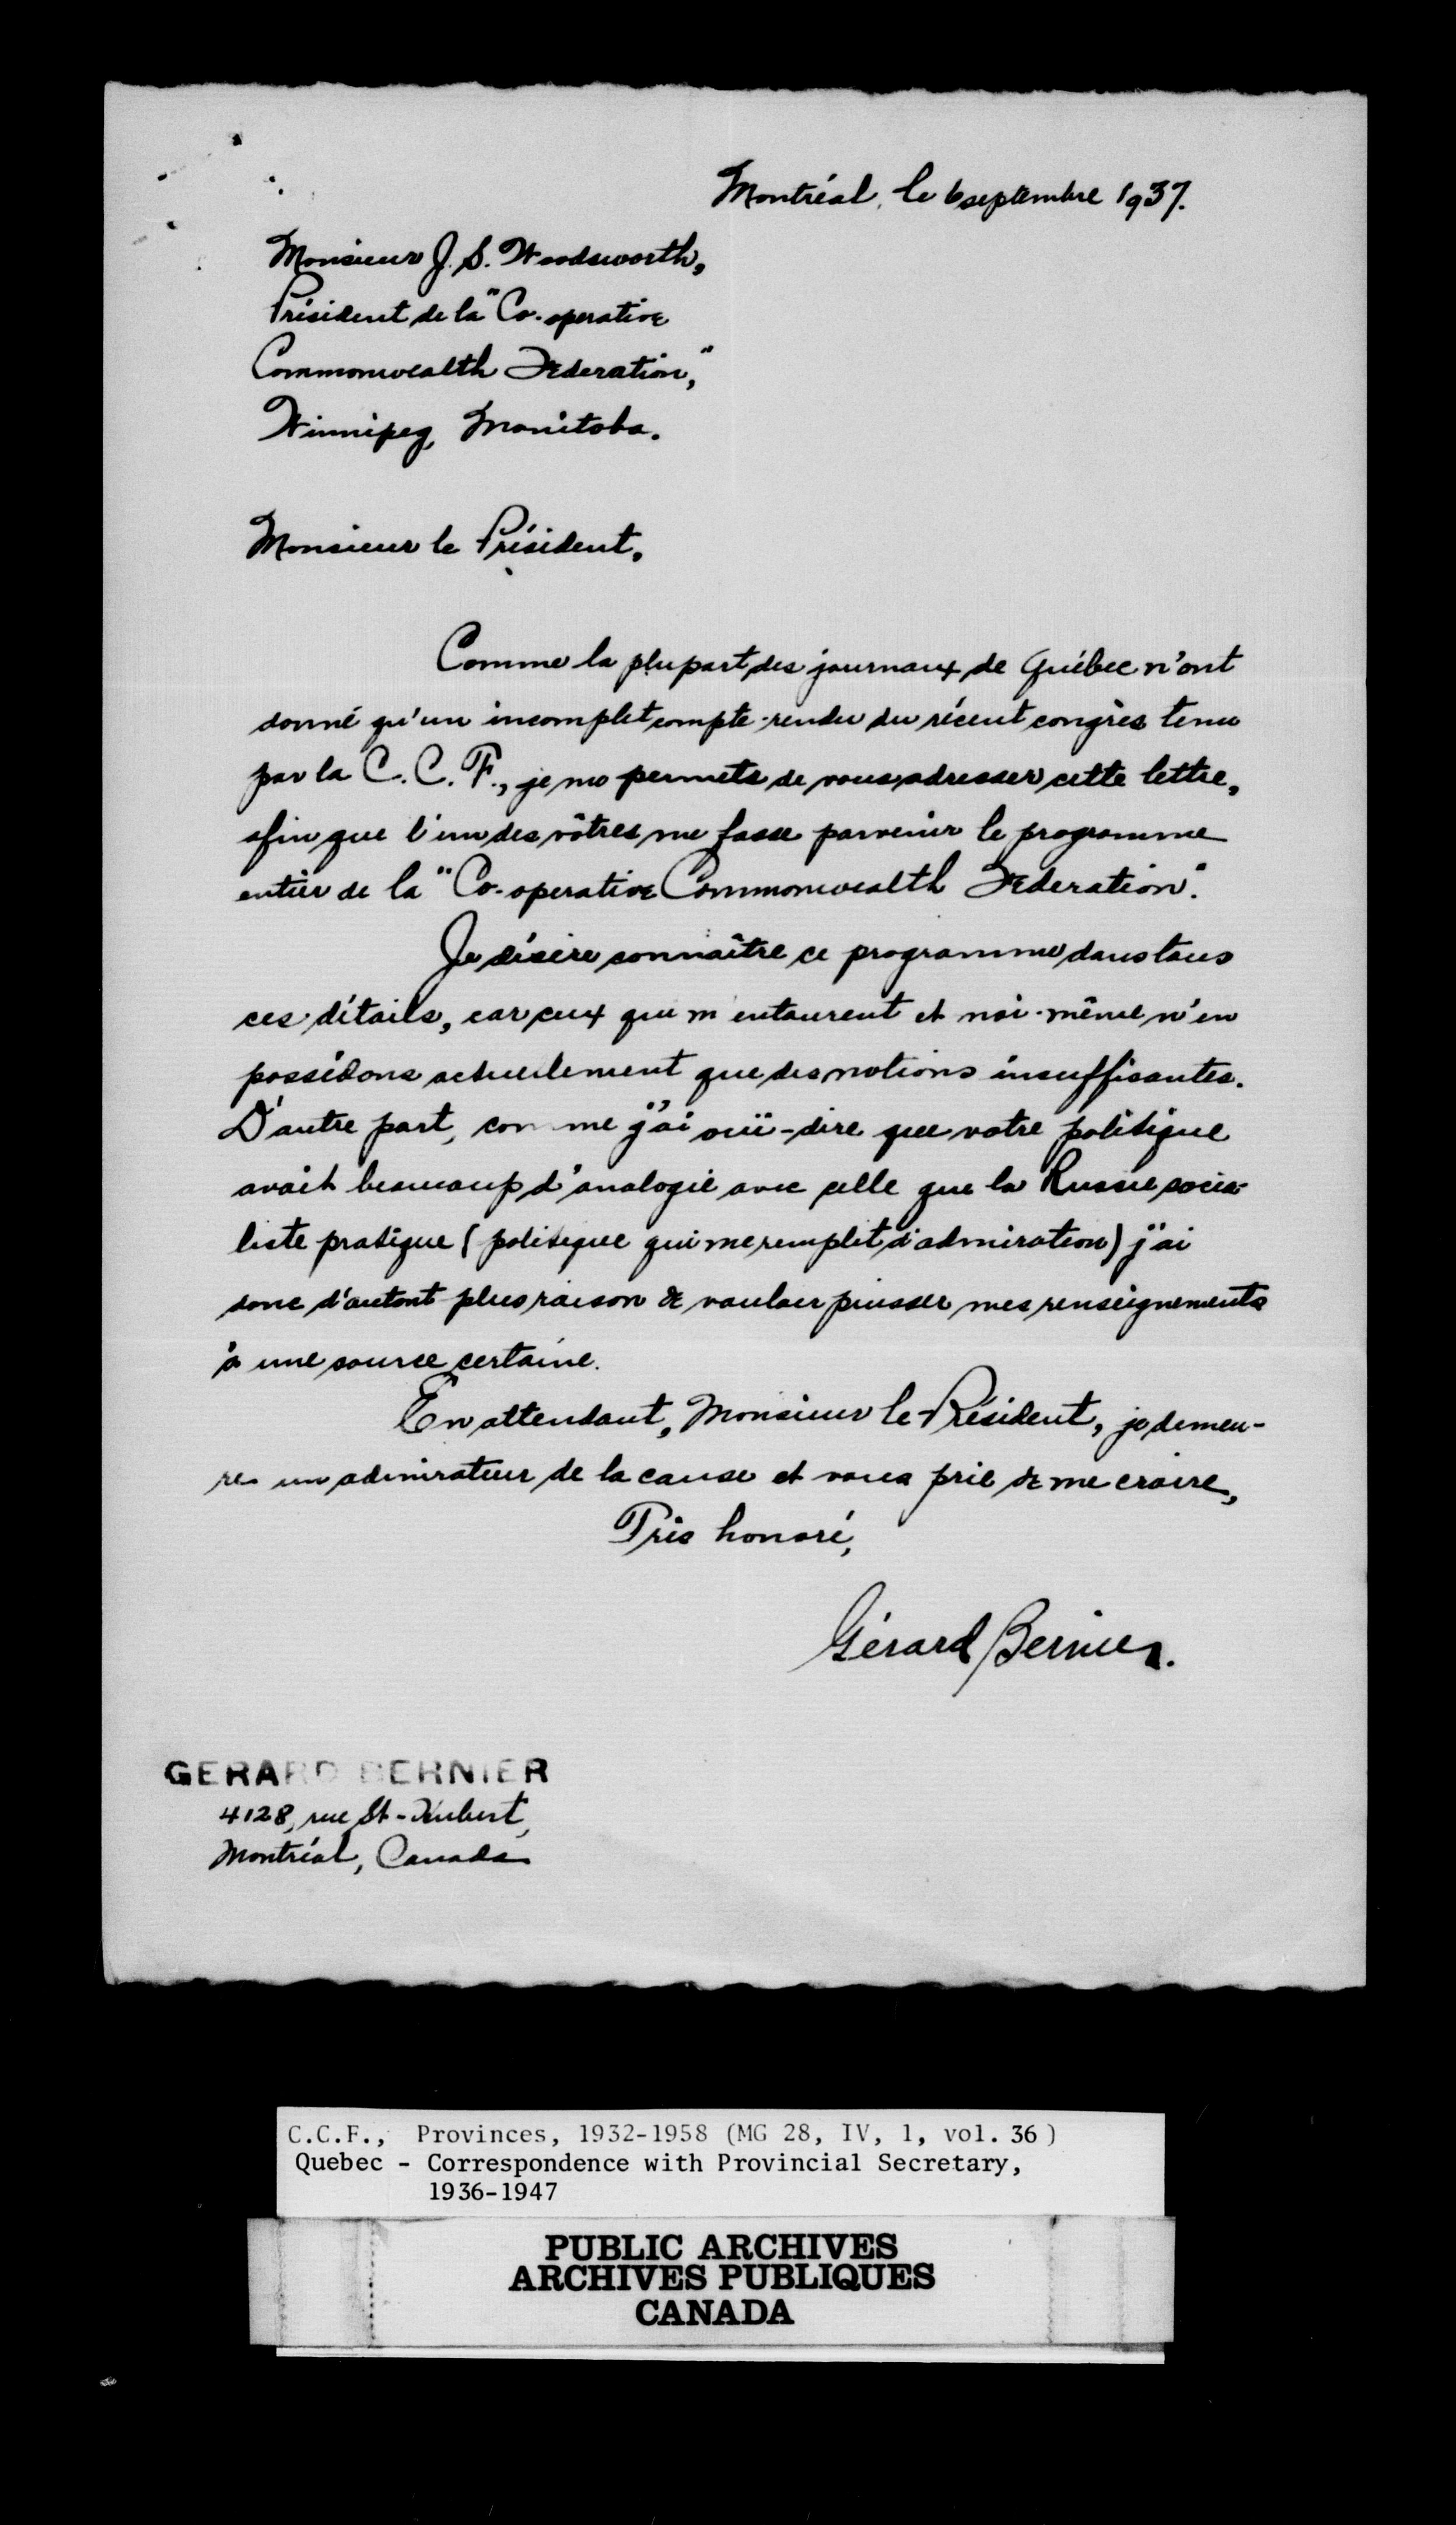 Montréal, le 6 septembre 1937.
Monsieur J. S. Woodsworth,
Président de la "Co-operative
Commonwealth Federation,"
Winnipeg, Manitoba.
Monsieur le Président,
Comme la plupart des journaux de Québec n'ont
donné qu'un incomplet compte-rendu du récent congrès tenu
par la C. C. F., je me permets de vous adresser cette lettre,
afin que l'un des vôtres me fasse parvenir le programme
entier de la "Co-operative Commonwealth Federation".
Je désire connaître ce programme dans tous
ces détails, car ceux qui m'entourent et moi-même n'en
possédons actuellement que des notions insuffisantes.
D'autre part, comme j'ai ouï-dire que votre politique
avait beaucoup d'analogie avec celle que la Russie socia-
liste pratique (politique qui me remplit d'admiration) j'ai
donc d'autant plus raison de vouloir puiser mes renseignements
à une source certaine.
En attendant, Monsieur le Président, je demeu-
re un admirateur de la cause et vous prie de me croire,
Très honoré,
Gérard Bernier.
GERARD BERNIER
4128, rue St-Hubert,
Montréal, Canada
C.C.F., Provinces, 1932-1958 (MG 28, IV, 1, vol. 36)
Quebec - Correspondence with Provincial Secretary,
1936-1947
PUBLIC ARCHIVES
ARCHIVES PUBLIQUES
CANADA